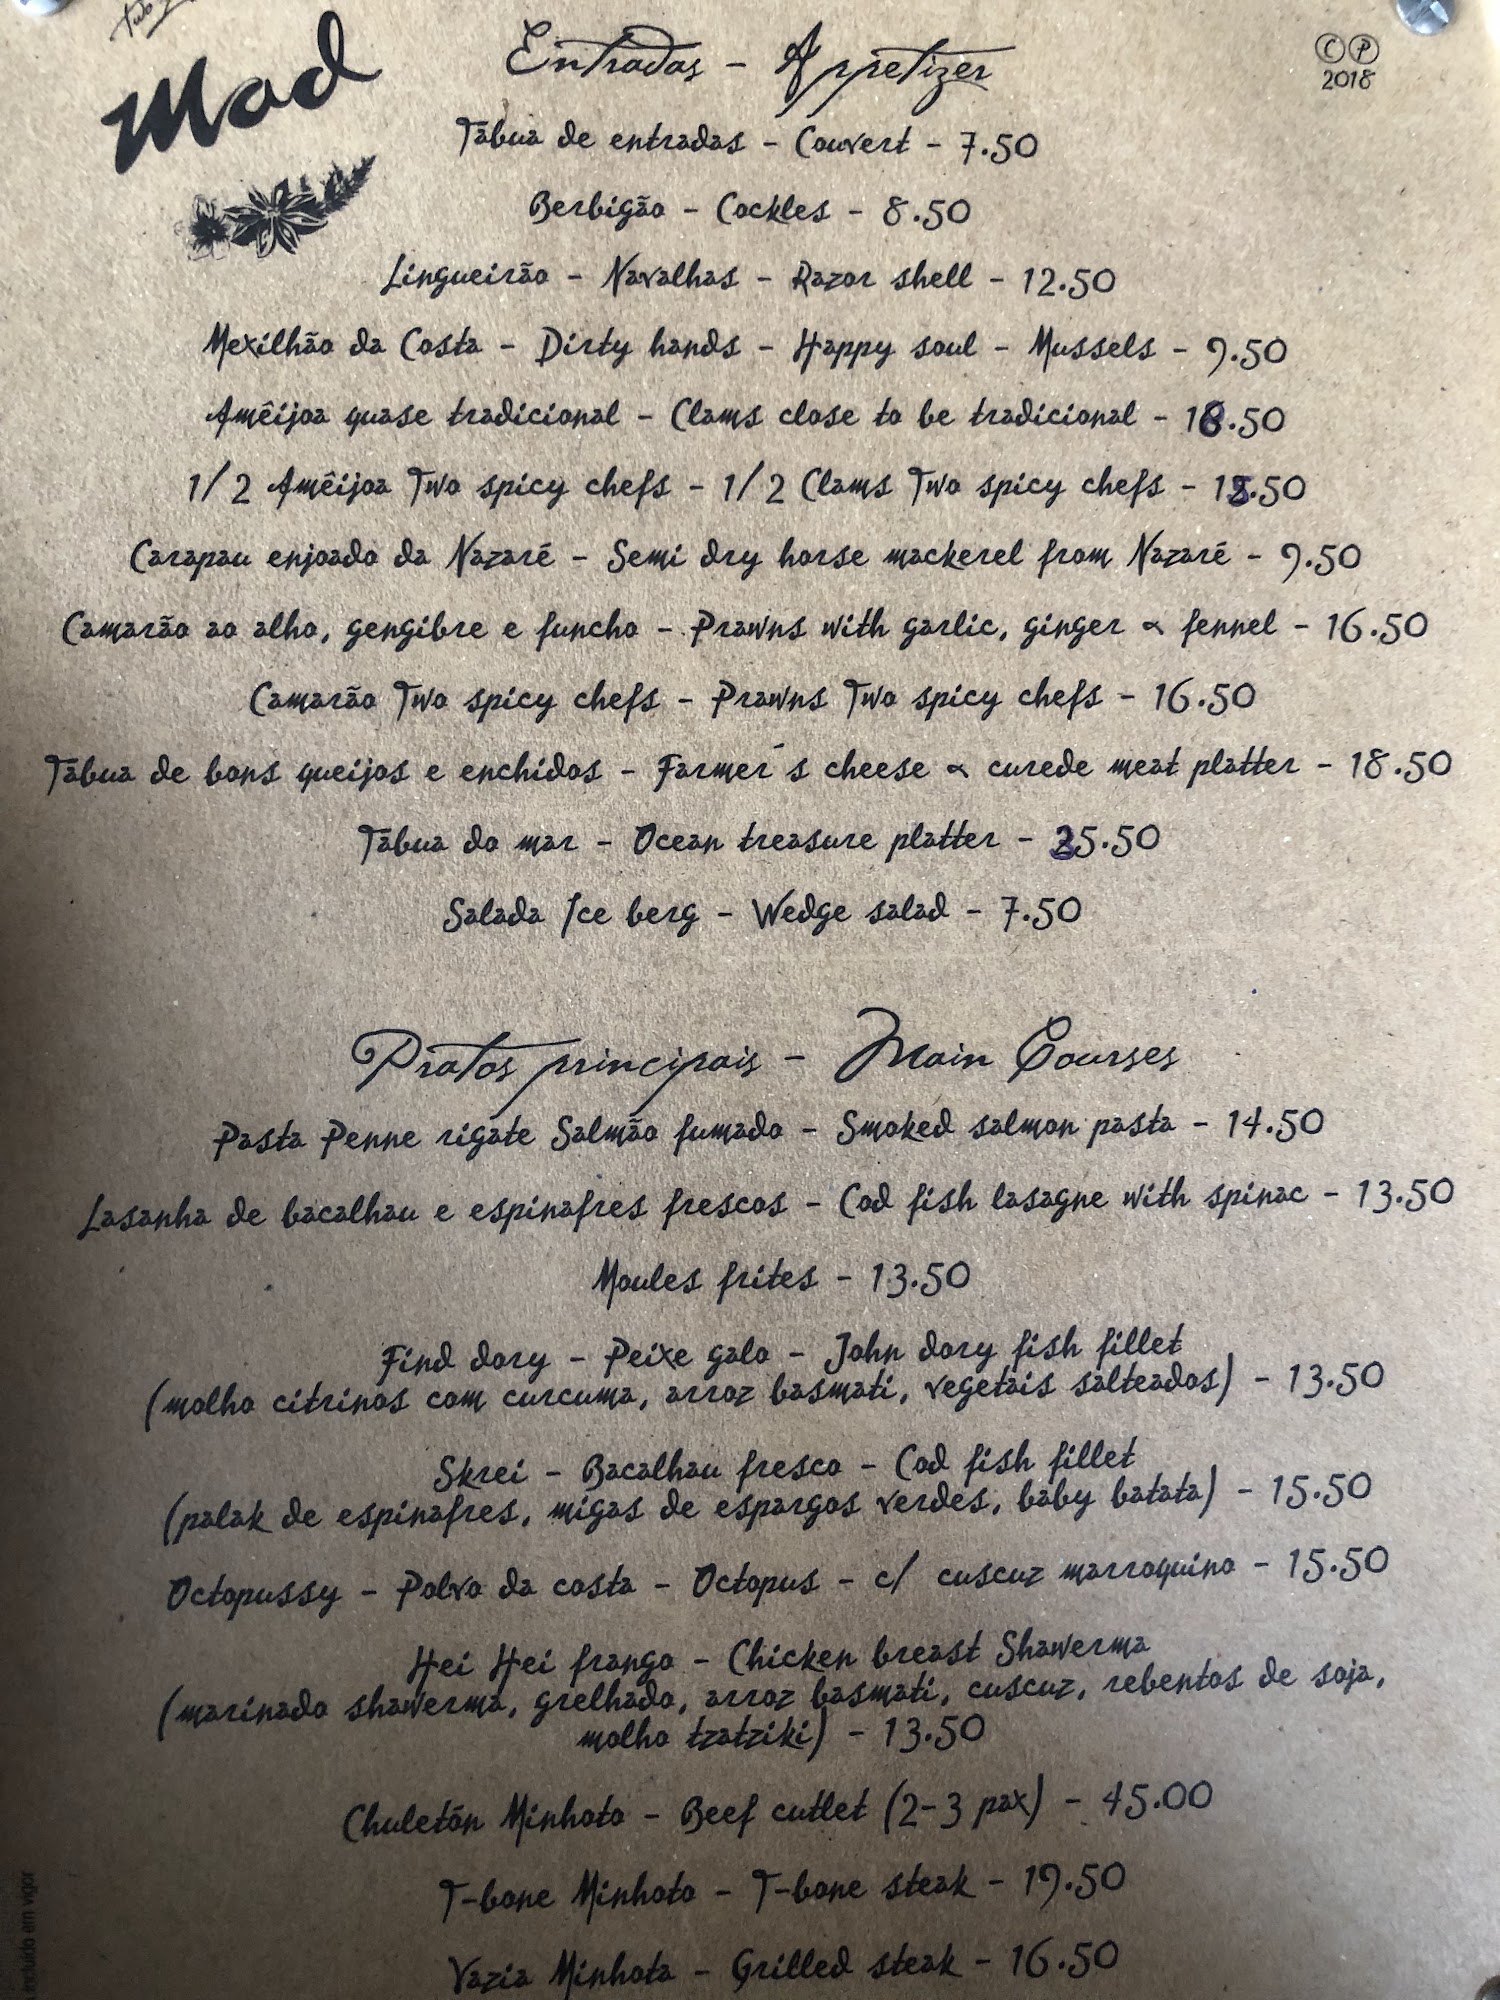 Two
Mad
Entradas - Appetizer
© Ⓟ
2018
Tábua de entradas - Couvert - 7.50
Berbigão - Cockles - 8.50
Lingueirão - Navalhas - Razor shell - 12.50
Mexilhão da Costa - Dirty hands - Happy soul - Mussels - 9.50
Amêijoa quase tradicional - Clams close to be tradicional - 18.50
1/2 Amêijoa Two spicy chefs - 1/2 Clams Two spicy chefs - 18.50
Carapau enjoado da Nazaré - Semi dry horse mackerel from Nazaré - 9.50
Camarão ao alho, gengibre e funcho - Prawns with garlic, ginger & fennel - 16.50
Camarão Two spicy chefs - Prawns Two spicy chefs - 16.50
Tábua de bons queijos e enchidos - Farmer´s cheese & curede meat platter - 18.50
Tábua do mar - Ocean treasure platter - 25.50
Salada Ice berg - Wedge salad - 7.50
Pratos principais - Main Courses
Pasta Penne rigate Salmão fumado - Smoked salmon pasta - 14.50
Lasanha de bacalhau e espinafres frescos - Cod fish lasagne with spinac - 13.50
Moules frites - 13.50
Find dory - Peixe galo - John dory fish fillet
(molho citrinos com curcuma, arroz basmati, vegetais salteados) - 13.50
Skrei - Bacalhau fresco - Cod fish fillet
(palak de espinafres, migas de espargos verdes, baby batata) - 15.50
Octopussy - Polvo da costa - Octopus - c/ cuscuz marroquino - 15.50
Hei Hei frango - Chicken breast Shawerma
(marinado shawerma, grelhado, arroz basmati, cuscuz, rebentos de soja,
molho tzatziki) - 13.50
Chuletón Minhoto - Beef cutlet (2-3 pax) - 45.00
T-bone Minhoto - T-bone steak - 19.50
Vazia Minhota - Grilled steak - 16.50
incluído em vigor